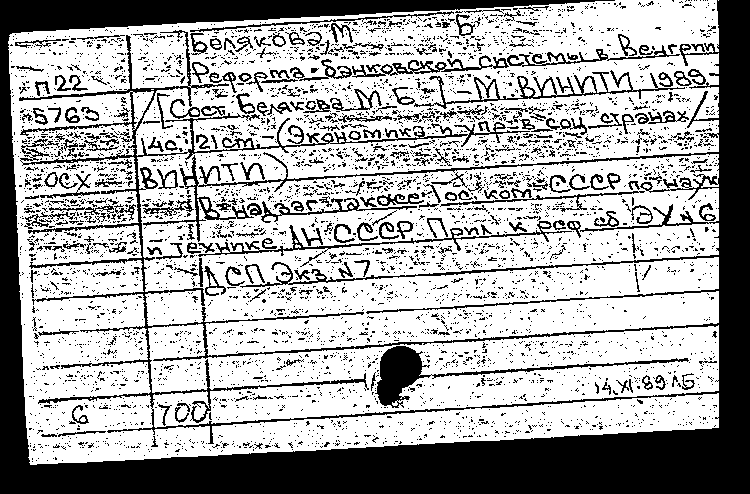 Белякова, М Б
П22 Реформа банковской системы в Венгрии
5763 / [Сост. Белякова М. Б.] – М.: ВИНИТИ, 1989.–
14с.; 21см. – (Экономика и упр. в соц. странах /
осх ВИНИТИ)
В надзаг. также: Гос. ком. СССР по науке
и технике, АН СССР. Прил. к реф. сб. ЭУ N 6
ДСП. Экз. N 7
6 700 14.XI.89